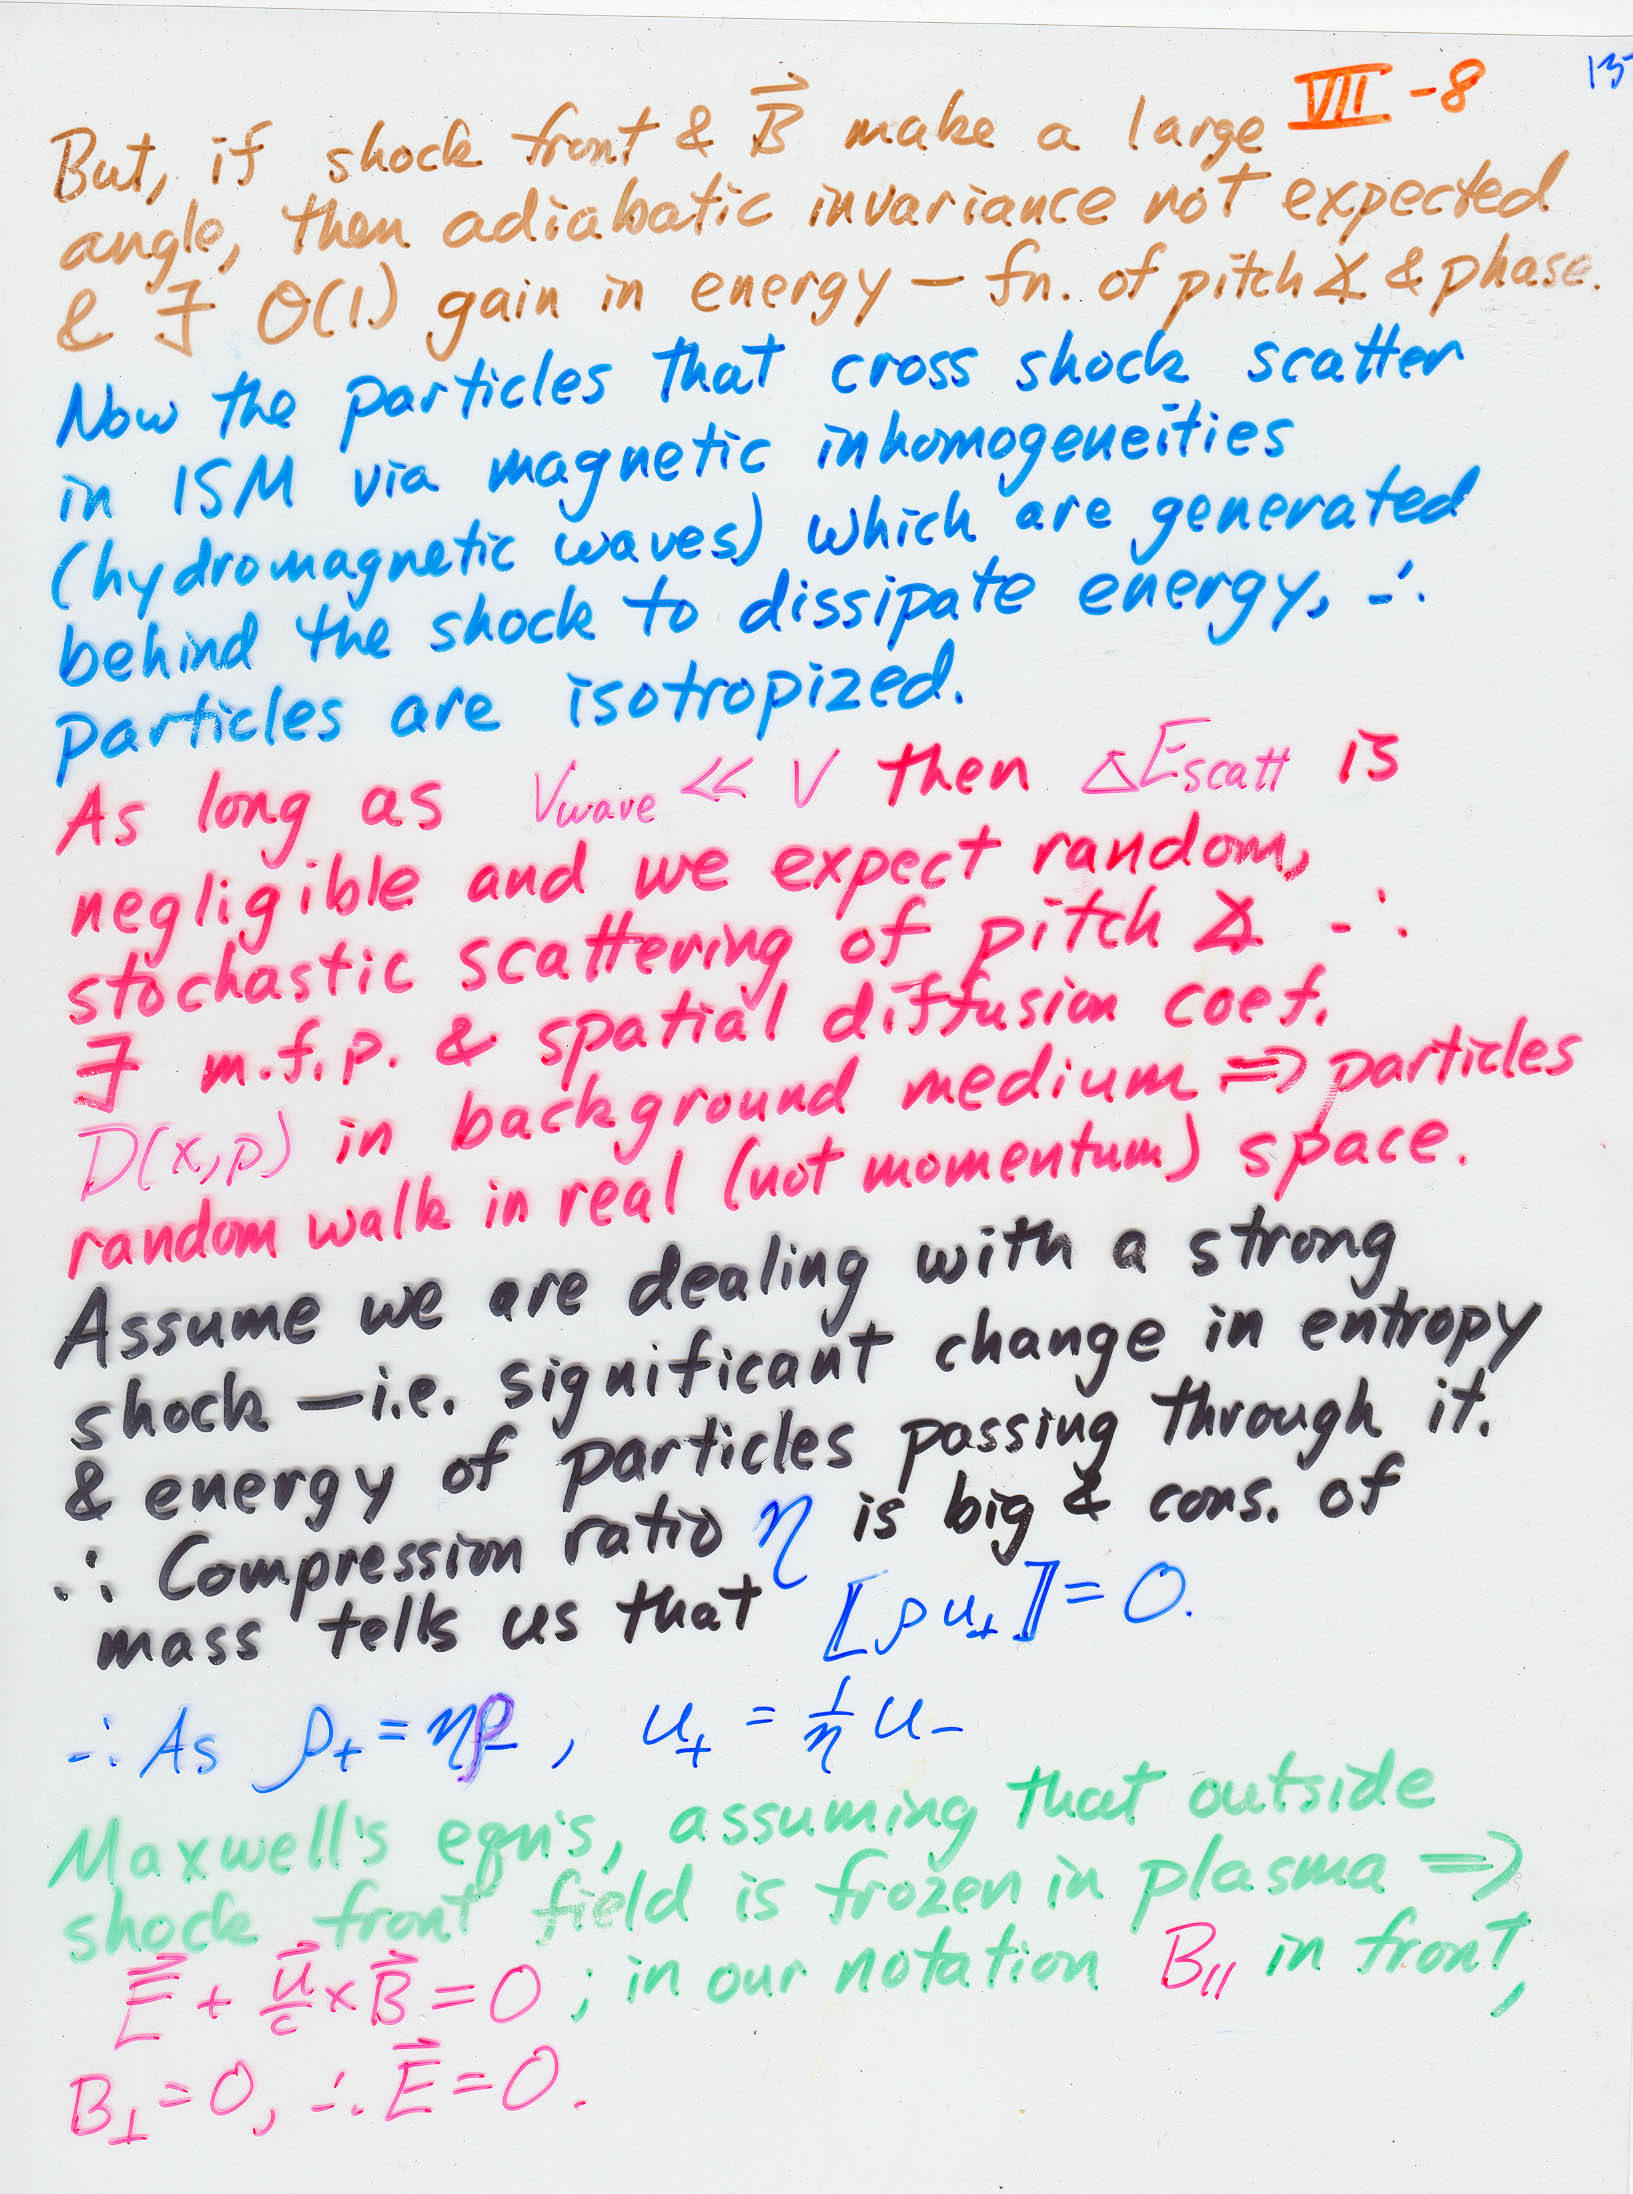 VII -8
13
But, if shock front & \vec{B} make a large
angle, then adiabatic invariance not expected
& ∃ O(1) gain in energy — fn. of pitch ∡ & phase.
Now the particles that cross shock scatter
in ISM via magnetic inhomogeneities
(hydromagnetic waves) which are generated
behind the shock to dissipate energy, ∴
particles are isotropized.
As long as V_wave << V then ΔE_scatt is
negligible and we expect random,
stochastic scattering of pitch ∡ ∴
∃ m.f.p. & spatial diffusion coef.
D(x,p) in background medium ⇒ particles
random walk in real (not momentum) space.
Assume we are dealing with a strong
shock — i.e. significant change in entropy
& energy of particles passing through it.
∴ Compression ratio η is big & cons. of
mass tells us that ⟦ρu_⊥⟧ = 0.
∴ As ρ_+ = ηρ_-, u_+ = 1/η u_-
Maxwell's eqn's, assuming that outside
shock front field is frozen in plasma ⇒
\vec{E} + \vec{u}/c × \vec{B} = 0 ; in our notation B_∥ in front,
B_⊥ = 0, ∴ \vec{E} = 0.